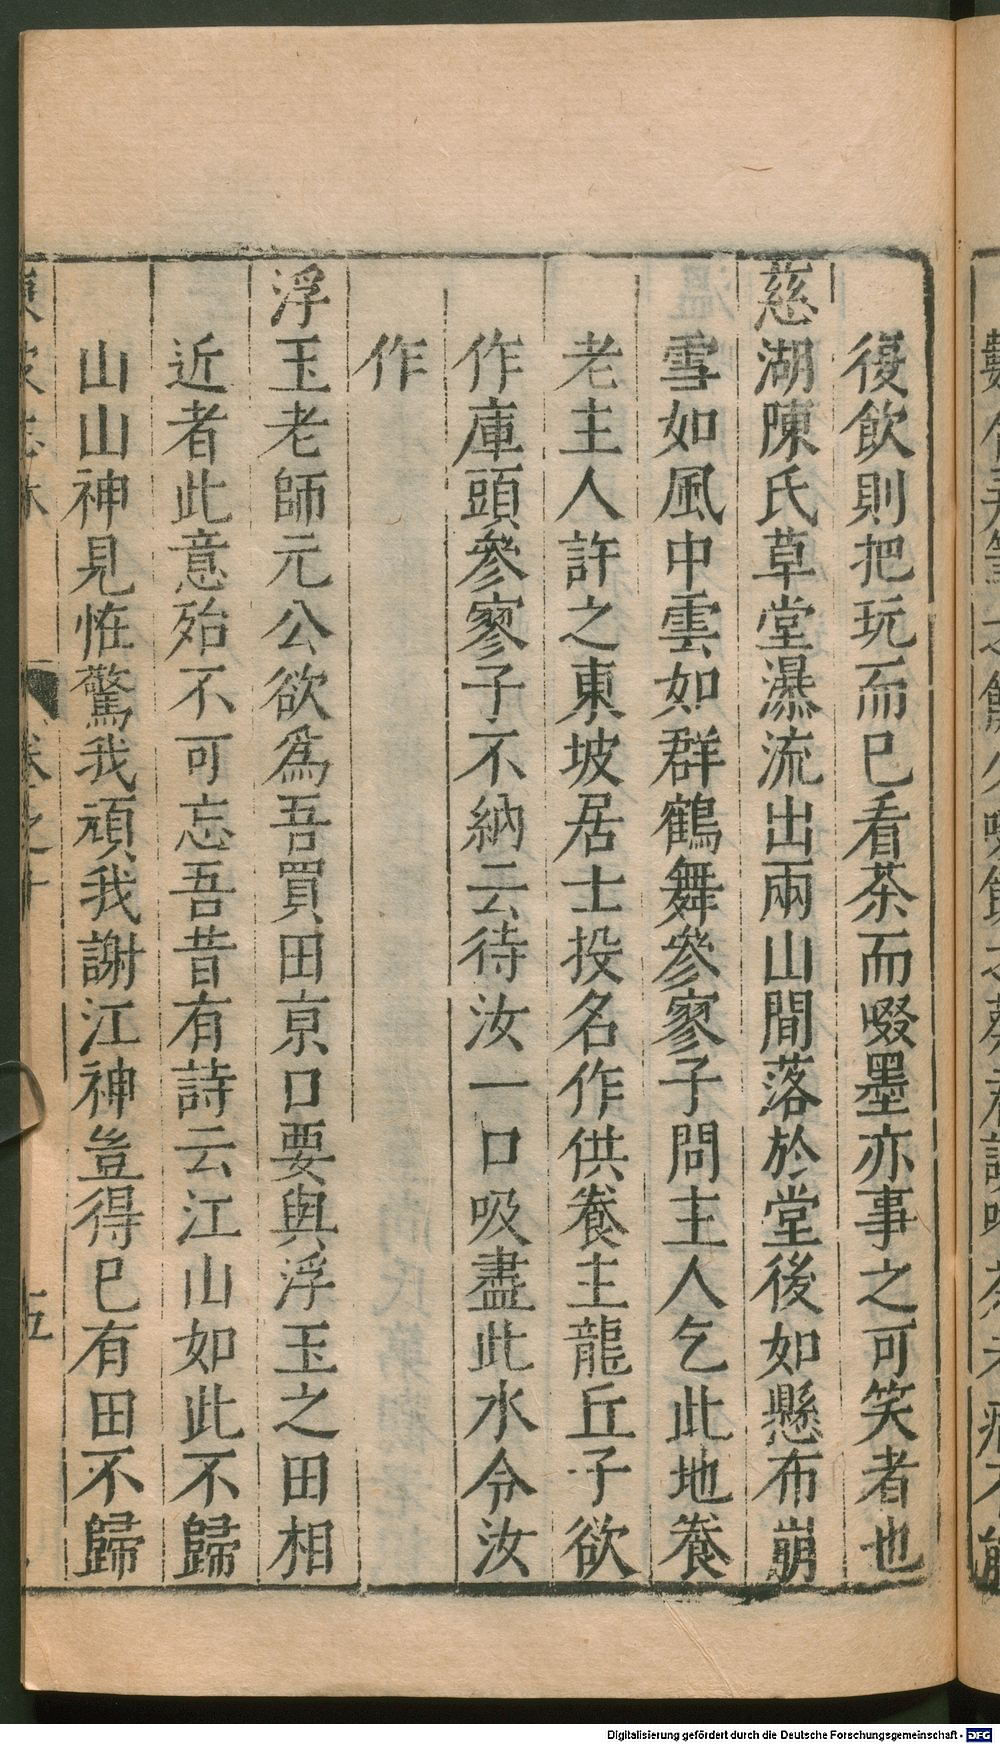 後飲則把玩而已看茶而啜墨亦事之可笑者也
慈湖陳氏草堂瀑流出兩山間落於堂後如懸布崩
雪如風中雲如群鶴舞參寥子問主人乞此地養
老主人許之東坡居士投名作供養主龍丘子欲
作庫頭參寥子不納云待汝一口吸盡此水令汝
作
浮玉老師元公欲爲吾買田京口要與浮玉之田相
近者此意殆不可忘吾昔有詩云江山如此不歸
山山神見恠驚我頑我謝江神豈得已有田不歸
卷之十
五
Digitalisierung gefördert durch die Deutsche Forschungsgemeinschaft - DFG